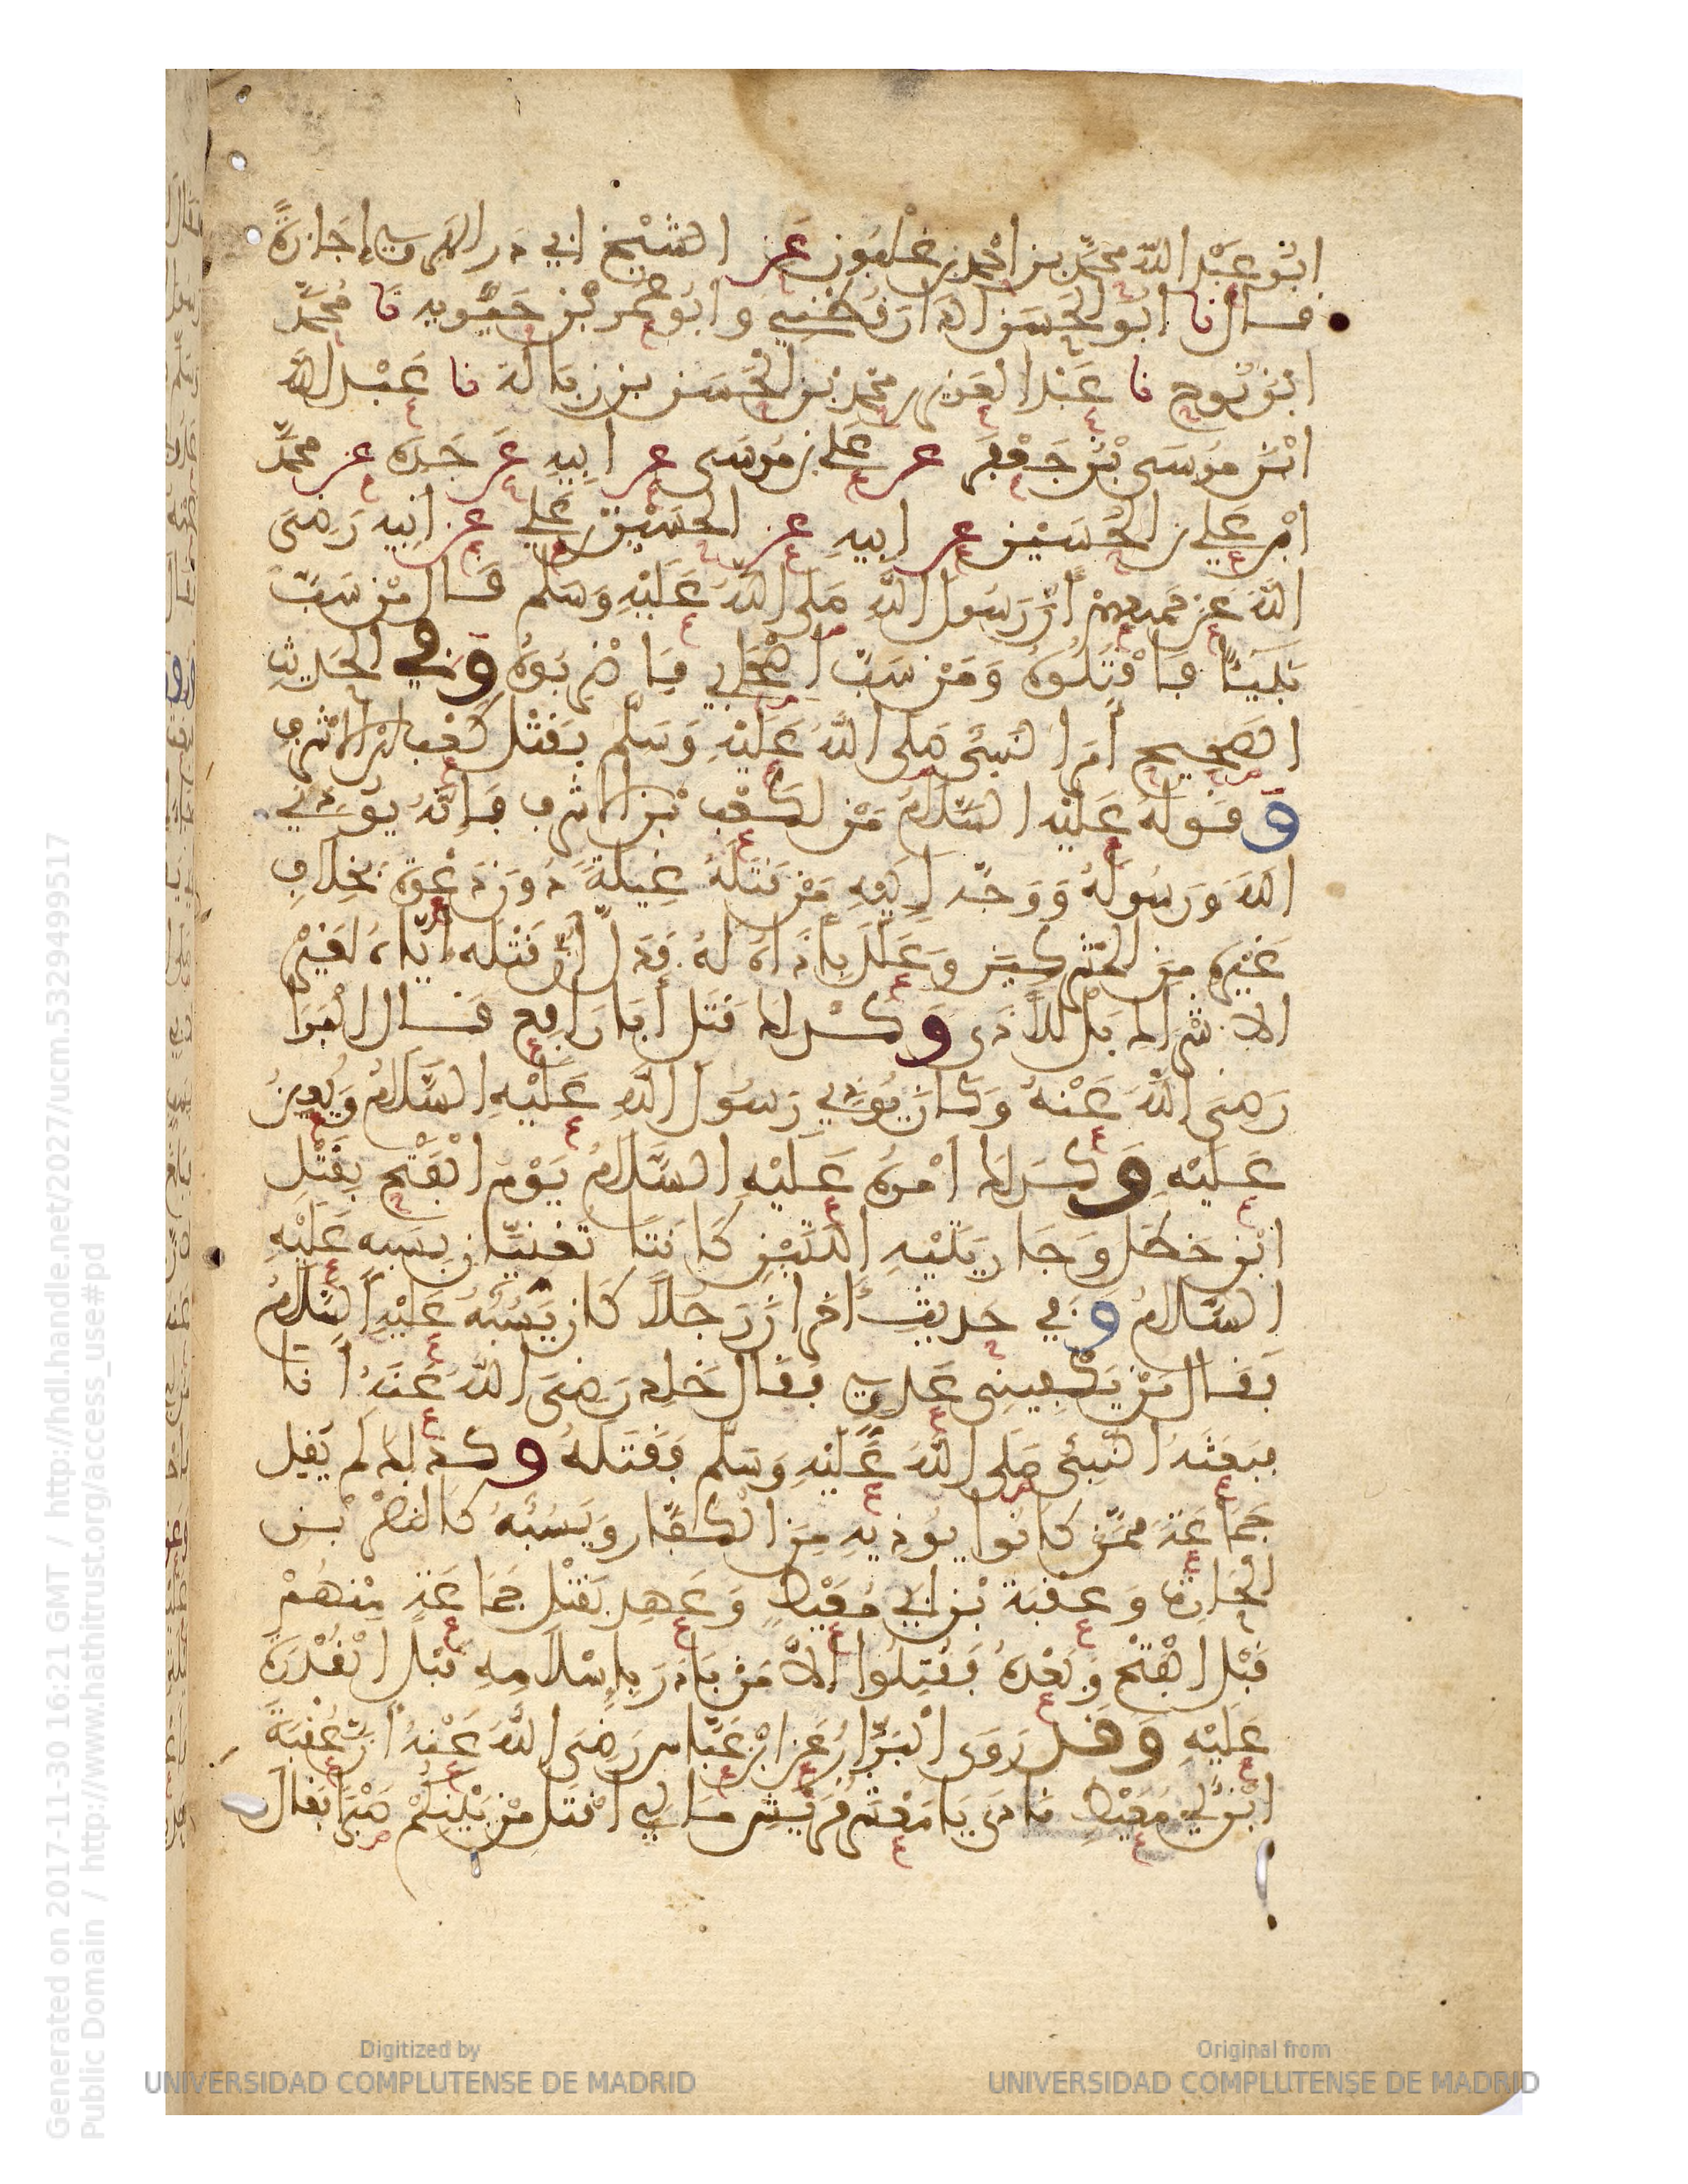 ابو عبد الله محمد بن احمد بن غلبون عن الشيخ ابي ذر الهروي اجازة
قال نا ابو الحسن الدارقطني وابو عمر بن حيويه نا محمد
ابن نوح نا عبد العزيز بن محمد بن الحسن بن زبالة نا عبد الله
ابن موسى بن جعفر عن علي بن موسى عن ابيه عن جده عن محمد
ابن علي بن الحسين عن ابيه عن الحسين بن علي عن ابيه رضي
الله عنهم أن رسول الله صلى الله عليه وسلم قال من سب
نبيئا فاقتلوه ومن سب اصحابي فاضربوه وفي الحديث
الصحيح أمر النبي صلى الله عليه وسلم بقتل كعب بن الاشرف
وقوله عليه السلام من لكعب بن الاشرف فإنه يوذي
الله ورسوله ووجه إليه من قتله غيلة دون دعوة بخلاف
غيره من المشركين وعلل بأذاه له فدل أن قتله اياه لغير
الاشراك بل للأذى وكذلك قتل أبا رافع قال البرا
رضي الله عنه وكان يوذي رسول الله عليه السلام ويعين
عليه وكذلك امره عليه السلام يوم الفتح بقتل
ابن خطل وجاريتيه اللتين كانتا تغنيان بسبه عليه
السلام وفي حديث أخر ان رجلا كان يسبه عليه السلام
فقال من يكفيني عدوي فقال خلد رضي الله عنه أنا
فبعثه النبي صلى الله عليه وسلم فقتله وكذلك لم يقل
جماعة ممن كانوا يوذيه من الكفار ويسبه كالنضر بن
الحارث وعقبة بن ابي معيط وعهد بقتل جماعة منهم
قبل الفتح وبعده فقتلوا إلا من بادر بإسلامه قبل القدرة
عليه وقد روى البزار عن ابن عباس رضي الله عنه أن عقبة
ابن أبي معيط نادى يا معشر قريش مالي اقتل من بينكم صبرا فقال
Generated on 2017-11-30 16:21 GMT / http://hdl.handle.net/2027/ucm.5329499517
Public Domain / http://www.hathitrust.org/access_use#pd
Digitized by
UNIVERSIDAD COMPLUTENSE DE MADRID
Original from
UNIVERSIDAD COMPLUTENSE DE MADRID